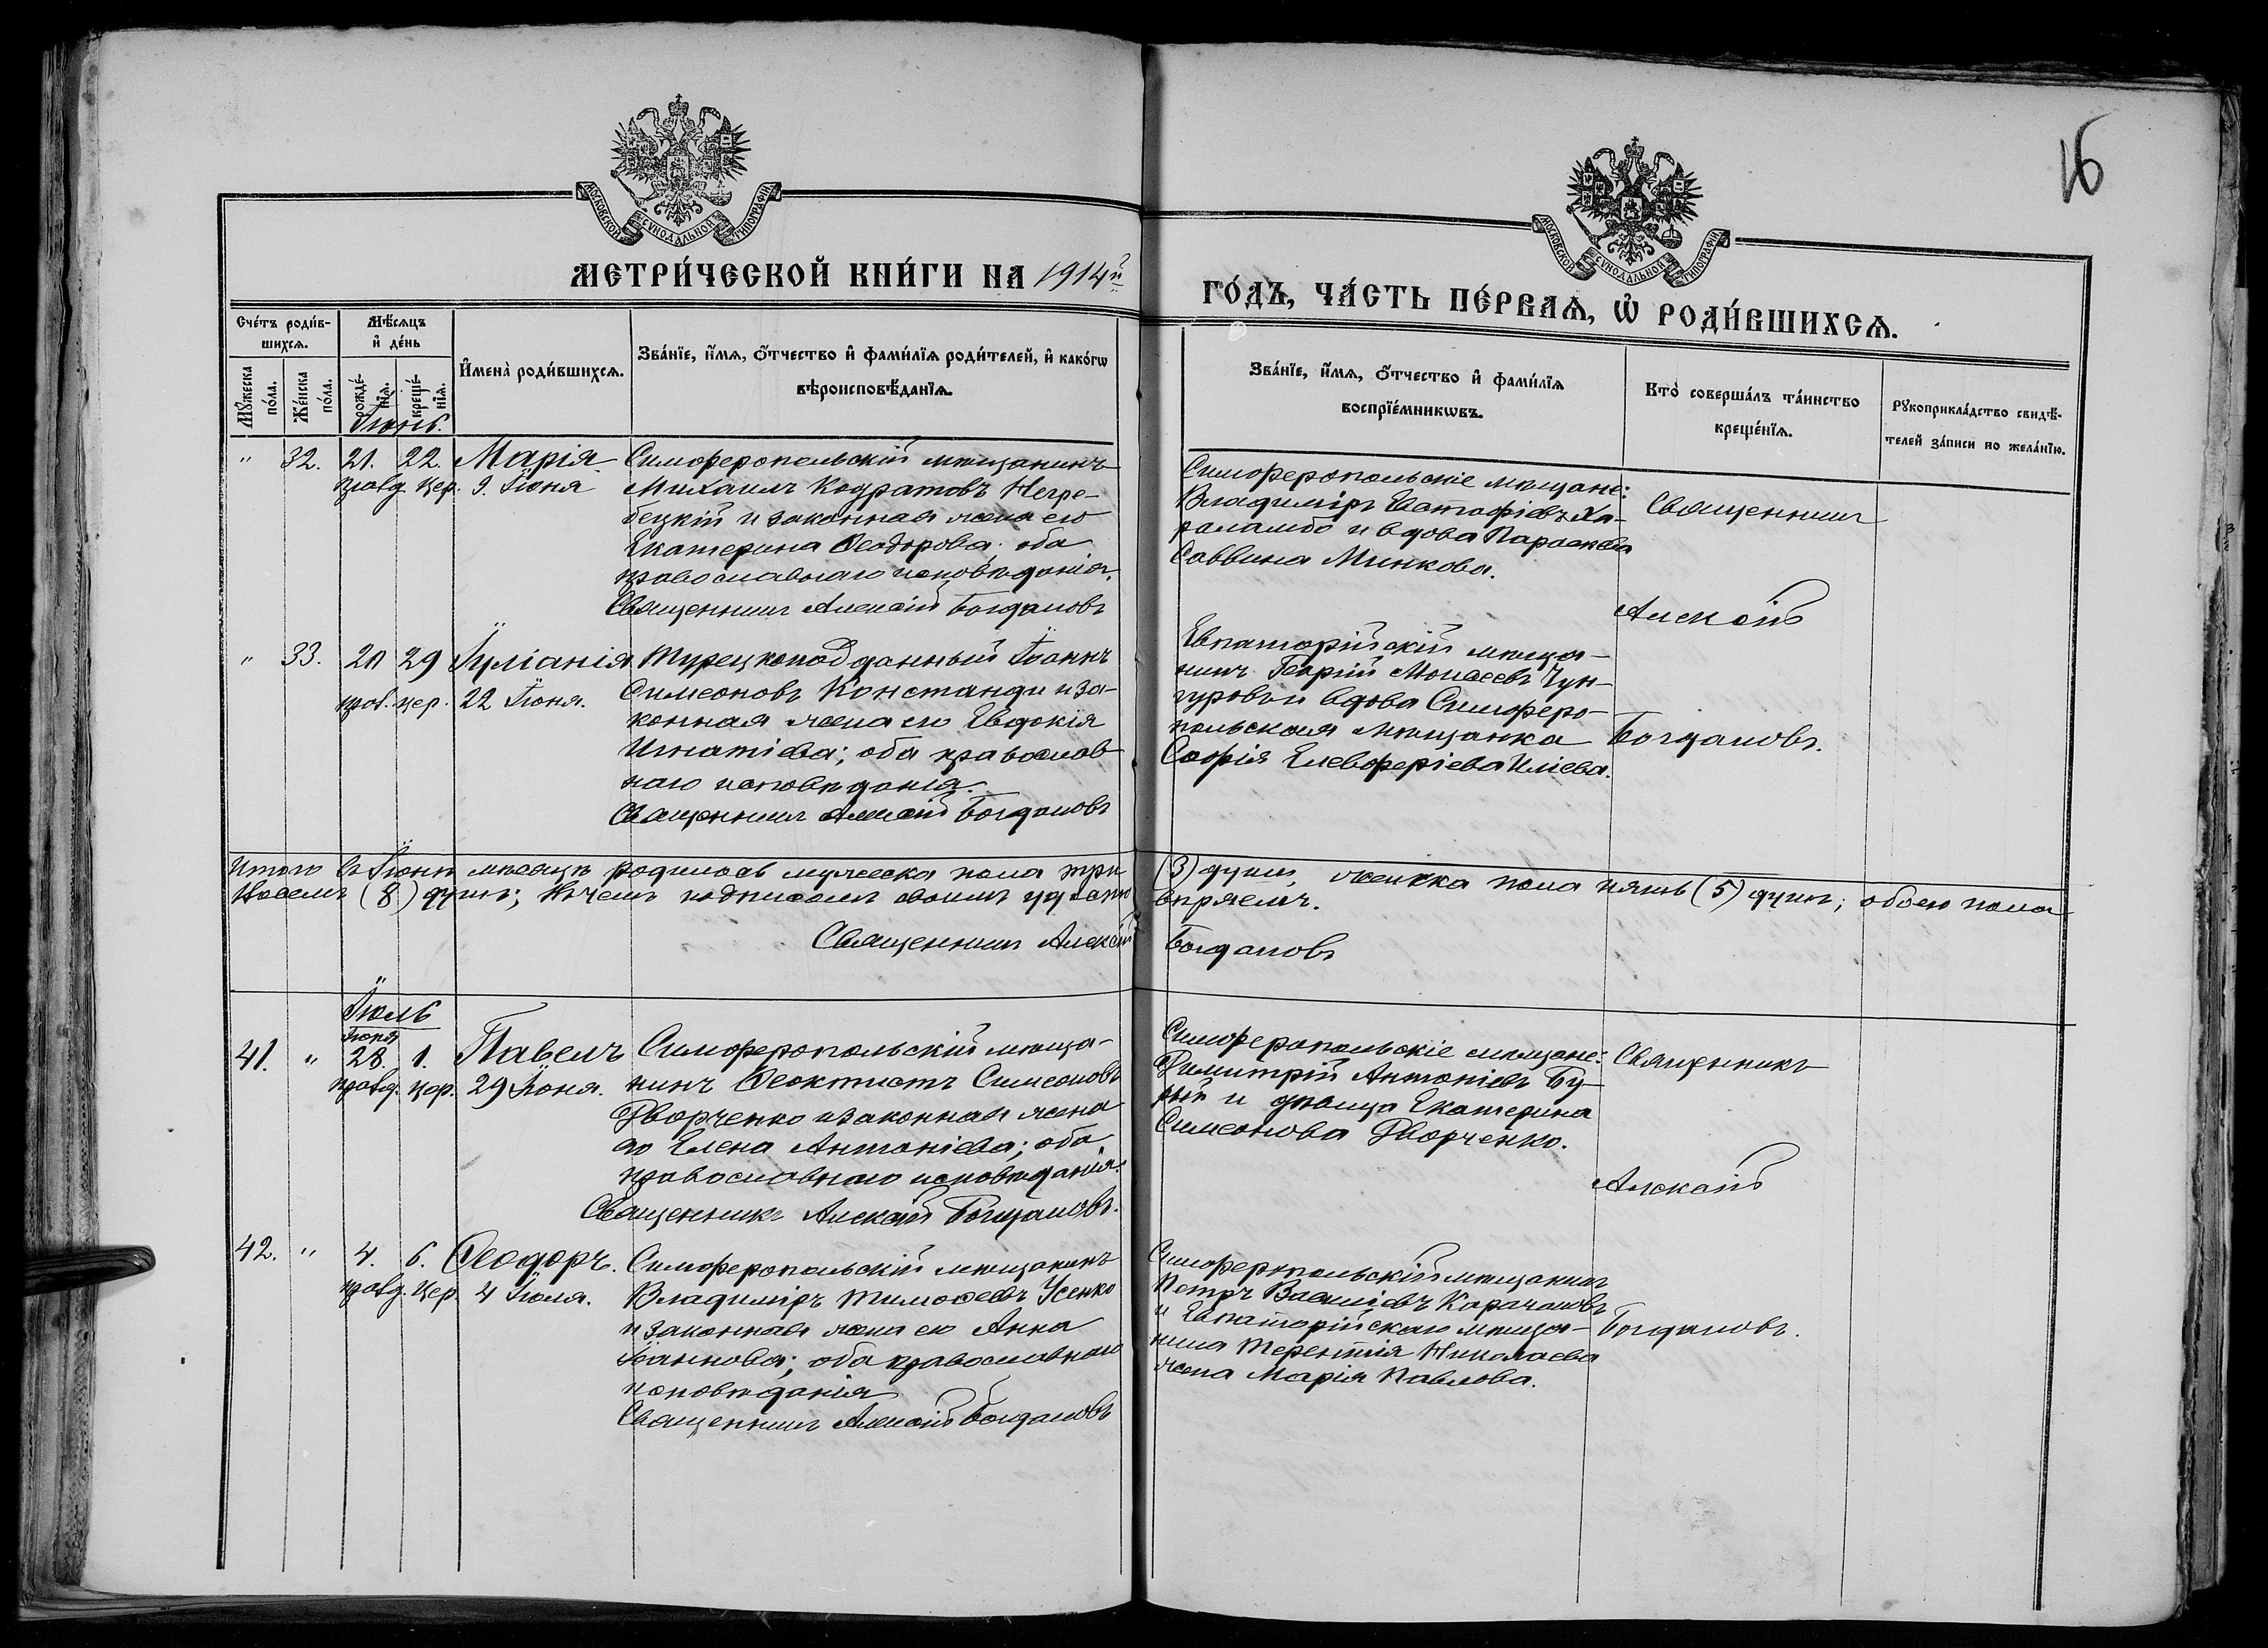 16
МОСКОВСКОЙ СѴНОДАЛЬНОЙ ТИПОГРАФІИ
МОСКОВСКОЙ СѴНОДАЛЬНОЙ ТИПОГРАФІИ
МЕТРИ́ЧЕСКОЙ КНИ́ГИ НА 1914й
ГО́ДЪ, ЧА́СТЬ ПЕ́РВАѦ, Ѡ҆ РОДИ́ВШИХСѦ.
Сче́тъ роди́в-
шихсѧ.
Мѣ́сѧцъ
и҆ де́нь
Мꙋ́жеска
по́ла.
Же́нска
по́ла.
рожде́-
нїѧ.
креще́-
нїѧ.
И҆мена̀ роди́вшихсѧ.
Зва́нїе, и҆́мѧ, о҆́тчество и҆ фами́лїѧ роди́телей, и҆ како́гѡ
вѣроисповѣ́данїѧ.
Зва́нїе, и҆́мѧ, о҆́тчество и҆ фами́лїѧ
воспрїе́мникѡвъ.
Кто̀ соверша́лъ та́инство
креще́нїѧ.
Рꙋкоприкла́дство свидѣ́-
телей за́писи по жела́нїю.
Іюнь.
" 32. 21. 22. Марія
правд. цер. 9. Іюня
Симферопольскій мѣщанинъ
Михаилъ Кодратовъ Негре-
бецкій и законная жена его
Екатерина Ѳеодорова; оба
православнаго исповѣданія.
Священникъ Алексій Богдановъ
Симферопольскіе мѣщане:
Владиміръ Евстафіевъ Ха-
раламбо и вдова Параскева
Саввина Минкова.
Священникъ
Алексій
" 33. 20 29 Іуліанія
прав. цер. 22 Іюня.
Турецкоподданный Іоаннъ
Симеоновъ Константди и за-
конная жена его Евдокія
Игнатіева; оба православ-
наго исповѣданія.
Священникъ Алексій Богдановъ
Евпаторійскій мѣща-
нинъ Георгій Моисеевъ Чун-
гуровъ и вдова Симферо-
польская мѣщанка
Софія Елевферіева Иліева.
Богдановъ.
Итого въ Іюнѣ мѣсяцѣ родилось мужеска пола три (3) души, женска пола пять (5) душъ; обоего пола
восемь (8) душъ; въ чемъ подписомъ своимъ удостовѣряемъ.
Священникъ Алексій Богдановъ
Іюль
Іюня
41. " 28. 1. Павелъ
правд. цер. 29 Іюня.
Симферопольскій мѣща-
нинъ Ѳеоктистъ Симеоновъ
Дворченко и законная жена
его Елена Антоніева; оба
православнаго исповѣданія.
Священникъ Алексій Богдановъ.
Симферопольскіе мѣщане:
Димитрій Антоніевъ Бу-
и дѣвица Екатерина
Симеонова Дворченко.
Священникъ
Алексій
42. " 4. 6. Ѳеодоръ.
правд. цер. 4 Іюля.
Симферопольскій мѣщанинъ
Владиміръ Тимоѳеевъ Усенко
и законная жена его Анна
Іоаннова; оба православнаго
исповѣданія
Священникъ Алексій Богдановъ
Симферопольскій мѣщанинъ
Петръ Василіевъ Карачановъ
и Евпаторійскаго мѣща-
нина Терентія Николаева
жена Марія Павлова.
Богдановъ.